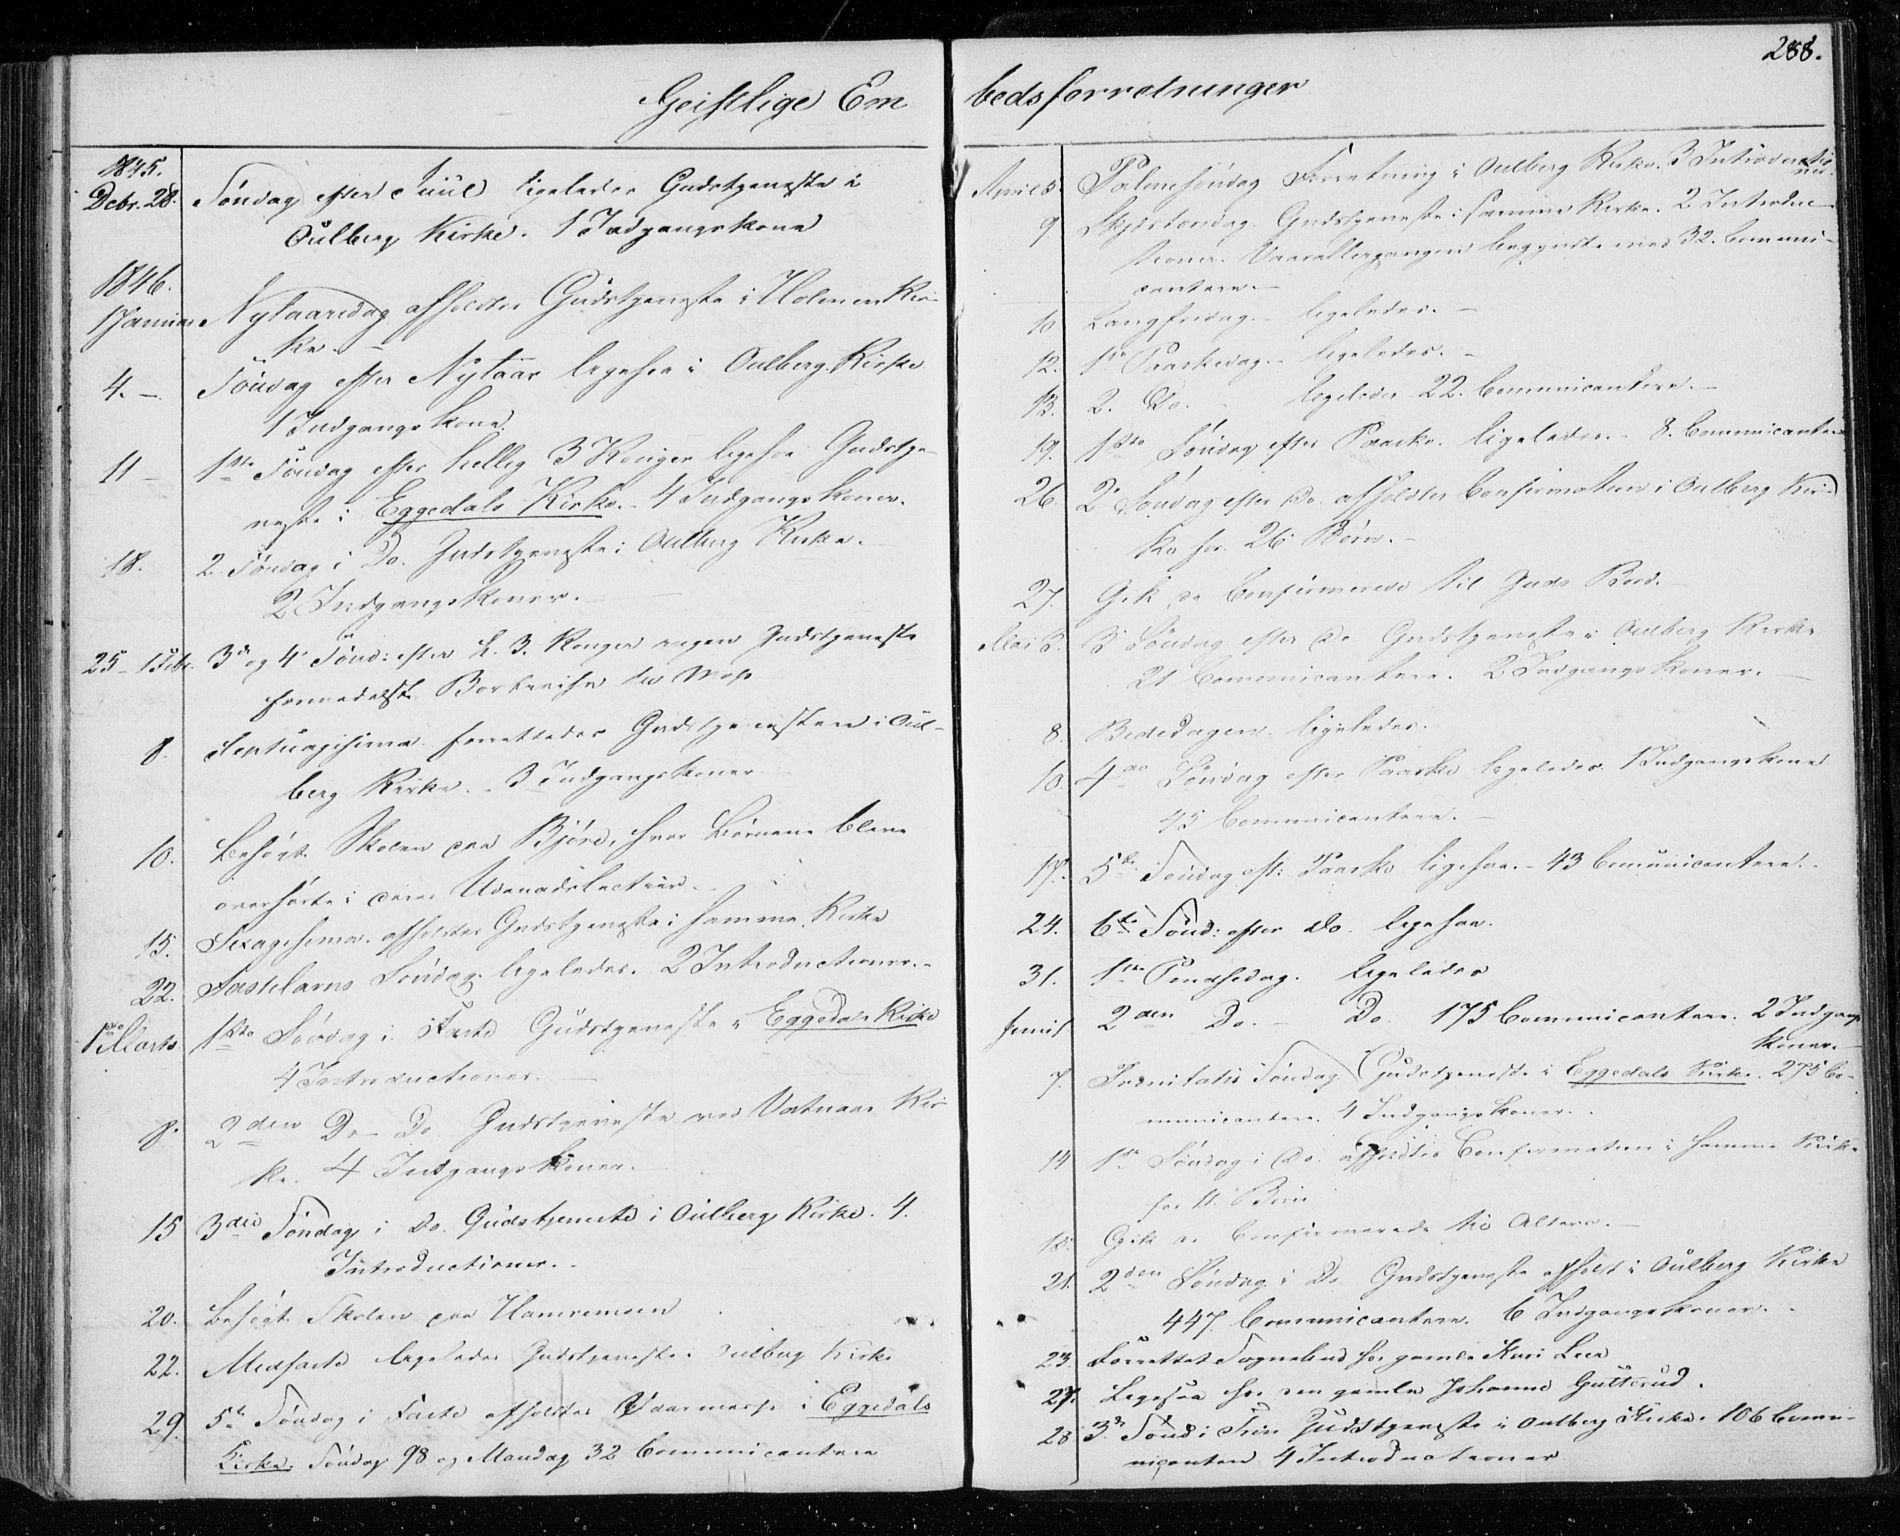 288.
Geistlige Em bedsforretninger
1845.
Debr. 28. Søndag efter Juul ligeledes Gudstjeneste i
Oulberg Kirke. 1 Indgangskone
1846.
1 Januar Nytaarsdag afholdtes Gudstjeneste i Holmen Kir-
ke. -
4. - Søndag efter Nytaar ligesaa i Oulberg Kirke
1 Indgangskone.
11 - 1ste Søndag efter hellig 3 Konger ligesaa Gudstje-
neste i Eggedals Kirke. - 4 Indgangskoner.
18. 2 Søndag i Do. Gudstjeneste i Oulberg Kirke. -
2 Indgangskoner. -
25 - 1 Febr. 3de og 4de Sønd: efter h. 3. Konger ingen Gudstjeneste
formedelst Bortreise til Moss
8. Septuagesima forrettedes Gudstjenesten i Oul-
berg Kirke. - 3 Indgangskoner
10. Besøgt Skolen paa Bjøre, hvor Børnene bleve
overhørte i deres Udenadslection. -
15. Sexagesima afholdtes Gudstjeneste i samme Kirke
22. Fastelavns Søndag ligeledes. 2 Introductioner. -
1ste Marts 1ste Søndag i Faste Gudstjeneste i Eggedals Kirke
4 Introductioner. -
8. 2den Do - Do Gudstjeneste ved Vatnaas Kir-
ke. 4 Indgangskoner.
15 3die Søndag i Do. Gudstjeneste i Oulberg Kirke. 4.
Introductioner. -
20. Besøgt Skolen paa Hamremoen
22. Midfaste ligeledes Gudstjeneste i Oulberg Kirke
29. 5te Søndag i Faste afholdtes Vaarmesse i Eggedals
Kirke. Søndag 98 og Mandag 32 Communicantere
April 5. Palmesøndag Forretning i Oulberg Kirke. 3 Introductio
ner.
9 Skjærtorsdag Gudstjeneste i samme Kirke. 2 Introduc-
tioner. Vaaraltergangen begyndte med 32. Communi-
cantere. -
10 Langfredag. - ligeledes. -
12. 1ste Paaskedag. - ligeledes. -
13. 2. Do. - ligeledes 22. Communicantere. -
19. 1ste Søndag efter Paaske. ligeledes. - 8. Communicantere
26. 2 Søndag efter Do. afholdtes Confirmation i Oulberg Kir-
ke for 26 Børn. -
27. Gik de Confirmerede til Guds Bord. -
Mai 3. 3 Søndag efter Do Gudstjeneste i Oulberg Kirke
21 Communicantere. 2 Indgangskoner. -
8. Bededagen ligeledes.
10. 4de Søndag efter Paaske ligeledes. 1 Indgangskone
45 Communicantere. -
17. 5te Søndag eft: Paaske ligesaa. - 43 Communicantere. -
24. 6te Sønd: efter Do. ligesaa.
31. 1ste Pintsedag. ligeledes
Juni 1 2den Do. - Do. 175 Communicantere. 2 Indgangs
koner. -
7. Trinitatis Søndag Gudstjeneste i Eggedals Kirke. 275 Co-
mmunicantere. 4 Indgangskoner. -
14 1ste Søndag i Do. afholdtes Confirmation i samme Kirke
for 11. Børn
15. Gik de Confirmerede til Alters. -
21. 2den Søndag i Do Gudstjeneste afholdt i Oulberg Kirke
447. Communicantere. 6 Indgangskoner. -
23. Forrettet Sognebud for gamle Kari Leer
27. Ligesaa for den gamle Johanne Gulterud.
28 3de Sønd i Trin Gudstjeneste i Oulberg Kirke. 106 Comu-
nicantere 4 Introductioner